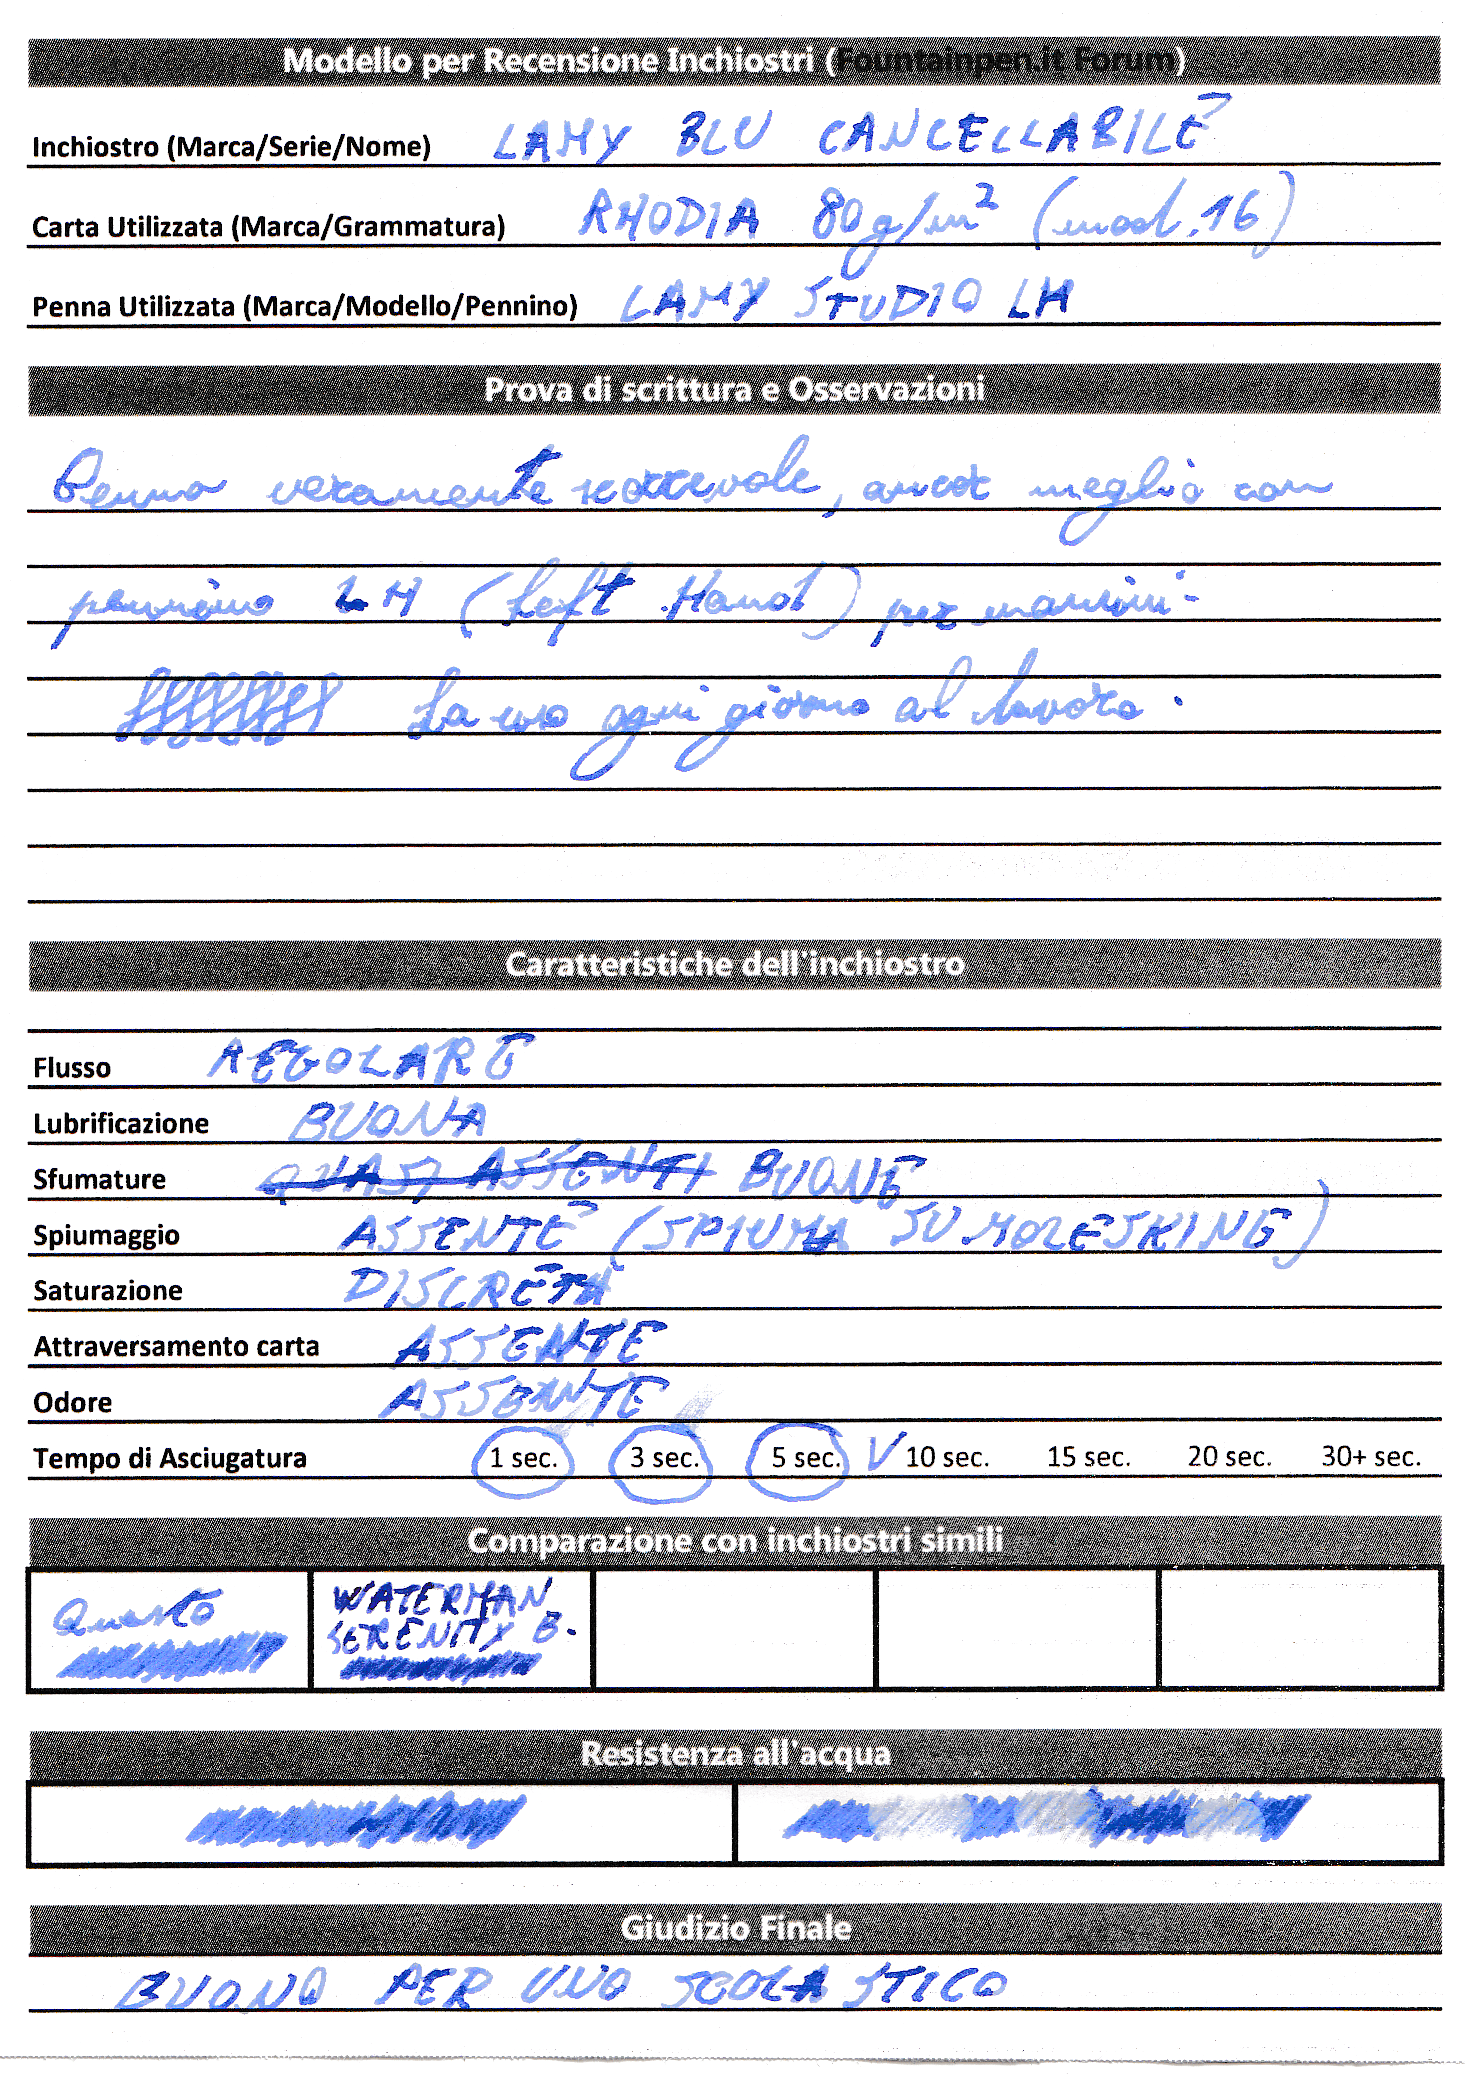 Modello per Recensione Inchiostri (Fountainpen.it Forum)
Inchiostro (Marca/Serie/Nome) LAMY BLU CANCELLABILE
Carta Utilizzata (Marca/Grammatura) RHODIA 80g/m² (mod. 16)
Penna Utilizzata (Marca/Modello/Pennino) LAMY STUDIO LH
Prova di scrittura e Osservazioni
Penna veramente scorrevole, ancor meglio con
pennino LH (Left Hand) per mancini-
La uso ogni giorno al lavoro.
Caratteristiche dell'inchiostro
Flusso REGOLARE
Lubrificazione BUONA
Sfumature QUASI ASSENTI BUONE
Spiumaggio ASSENTE (SPIUMA SU MOLESKINE)
Saturazione DISCRETA
Attraversamento carta ASSENTE
Odore ASSENTE
Tempo di Asciugatura 1 sec. 3 sec. 5 sec. V 10 sec. 15 sec. 20 sec. 30+ sec.
Comparazione con inchiostri simili
Questo
WATERMAN
SERENITY B.
Resistenza all'acqua
Giudizio Finale
BUONO PER UNO SCOLASTICO